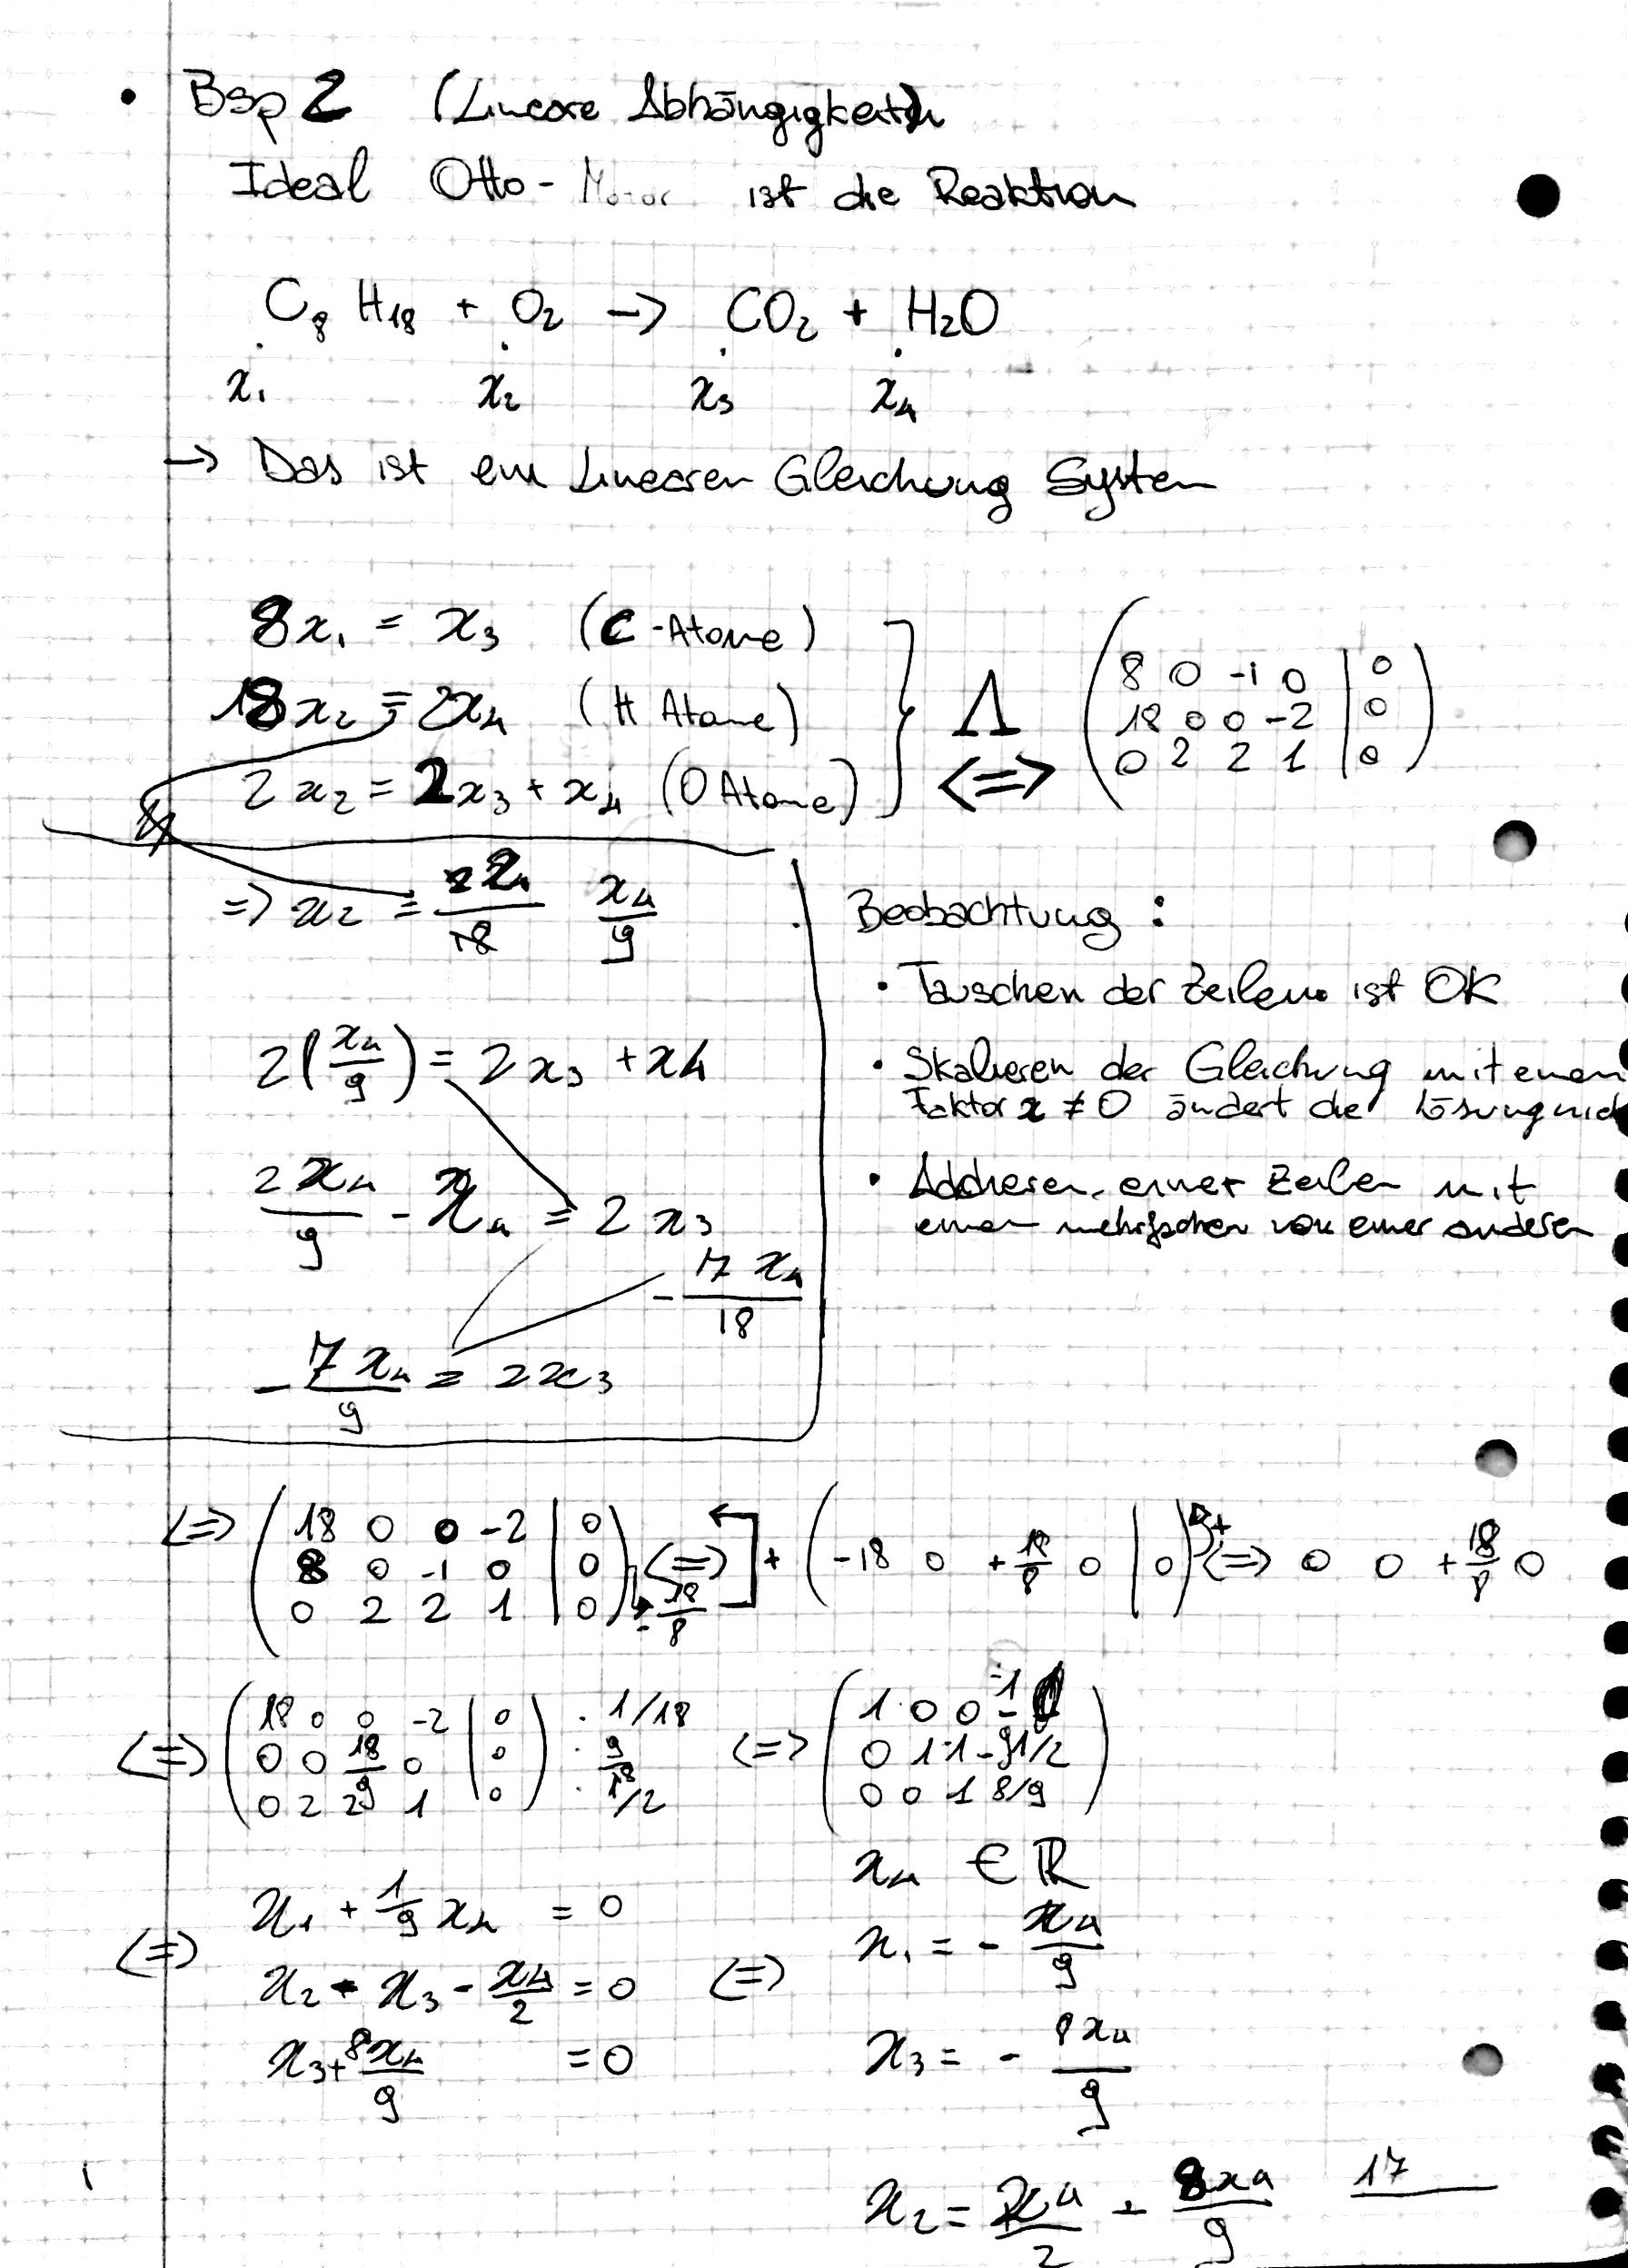 • Bsp 2 (Lineare Abhängigkeit)
Ideal Otto-Motor ist die Reaktion
C₈ H₁₈ + O₂ -> CO₂ + H₂O
x₁ x₂ x₃ x₄
-> Das ist ein Linearen Gleichung System
8x₁ = x₃ (C-Atome)
18x₂ = 2x₄ (H Atome)
2x₂ = 2x₃ + x₄ (O Atome)
Λ
<=>
8 0 -1 0 | 0
18 0 0 -2 | 0
0 2 2 1 | 0
=> x₂ = 2x₄/18 x₄/9
2(x₄/9) = 2x₃ + x₄
2x₄/9 - x₄ = 2x₃
- 17x₄/18
- 7x₄/9 = 2x₃
Beobachtung :
• Tauschen der Zeilen ist OK
• Skalieren der Gleichung mit einen
Faktor x ≠ 0 ändert die Lösung
• Addieren einer Zeilen mit
einen mehrfachen von einer anderen
<=> ( 18 0 0 -2 | 0
8 0 -1 0 | 0
0 2 2 1 | 0 ) <=> -18/8 + ( -18 0 +18/8 0 | 0 ) + <=> 0 0 +18/8 0
<=> ( 18 0 0 -2 | 0 ) · 1/18
0 0 18/9 0 | 0 · 9/18
0 2 2 1 | 0 · 1/2
<=> ( 1 0 0 -1
0 1 1 -1/2
0 0 1 8/9 )
<=> x₁ + 1/9 x₄ = 0
x₂ - x₃ - x₄/2 = 0
x₃ + 8x₄/9 = 0
<=> x₄ ∈ ℝ
x₁ = - x₄/9
x₃ = - 8x₄/9
x₂ = x₄/2 - 8x₄/9 17